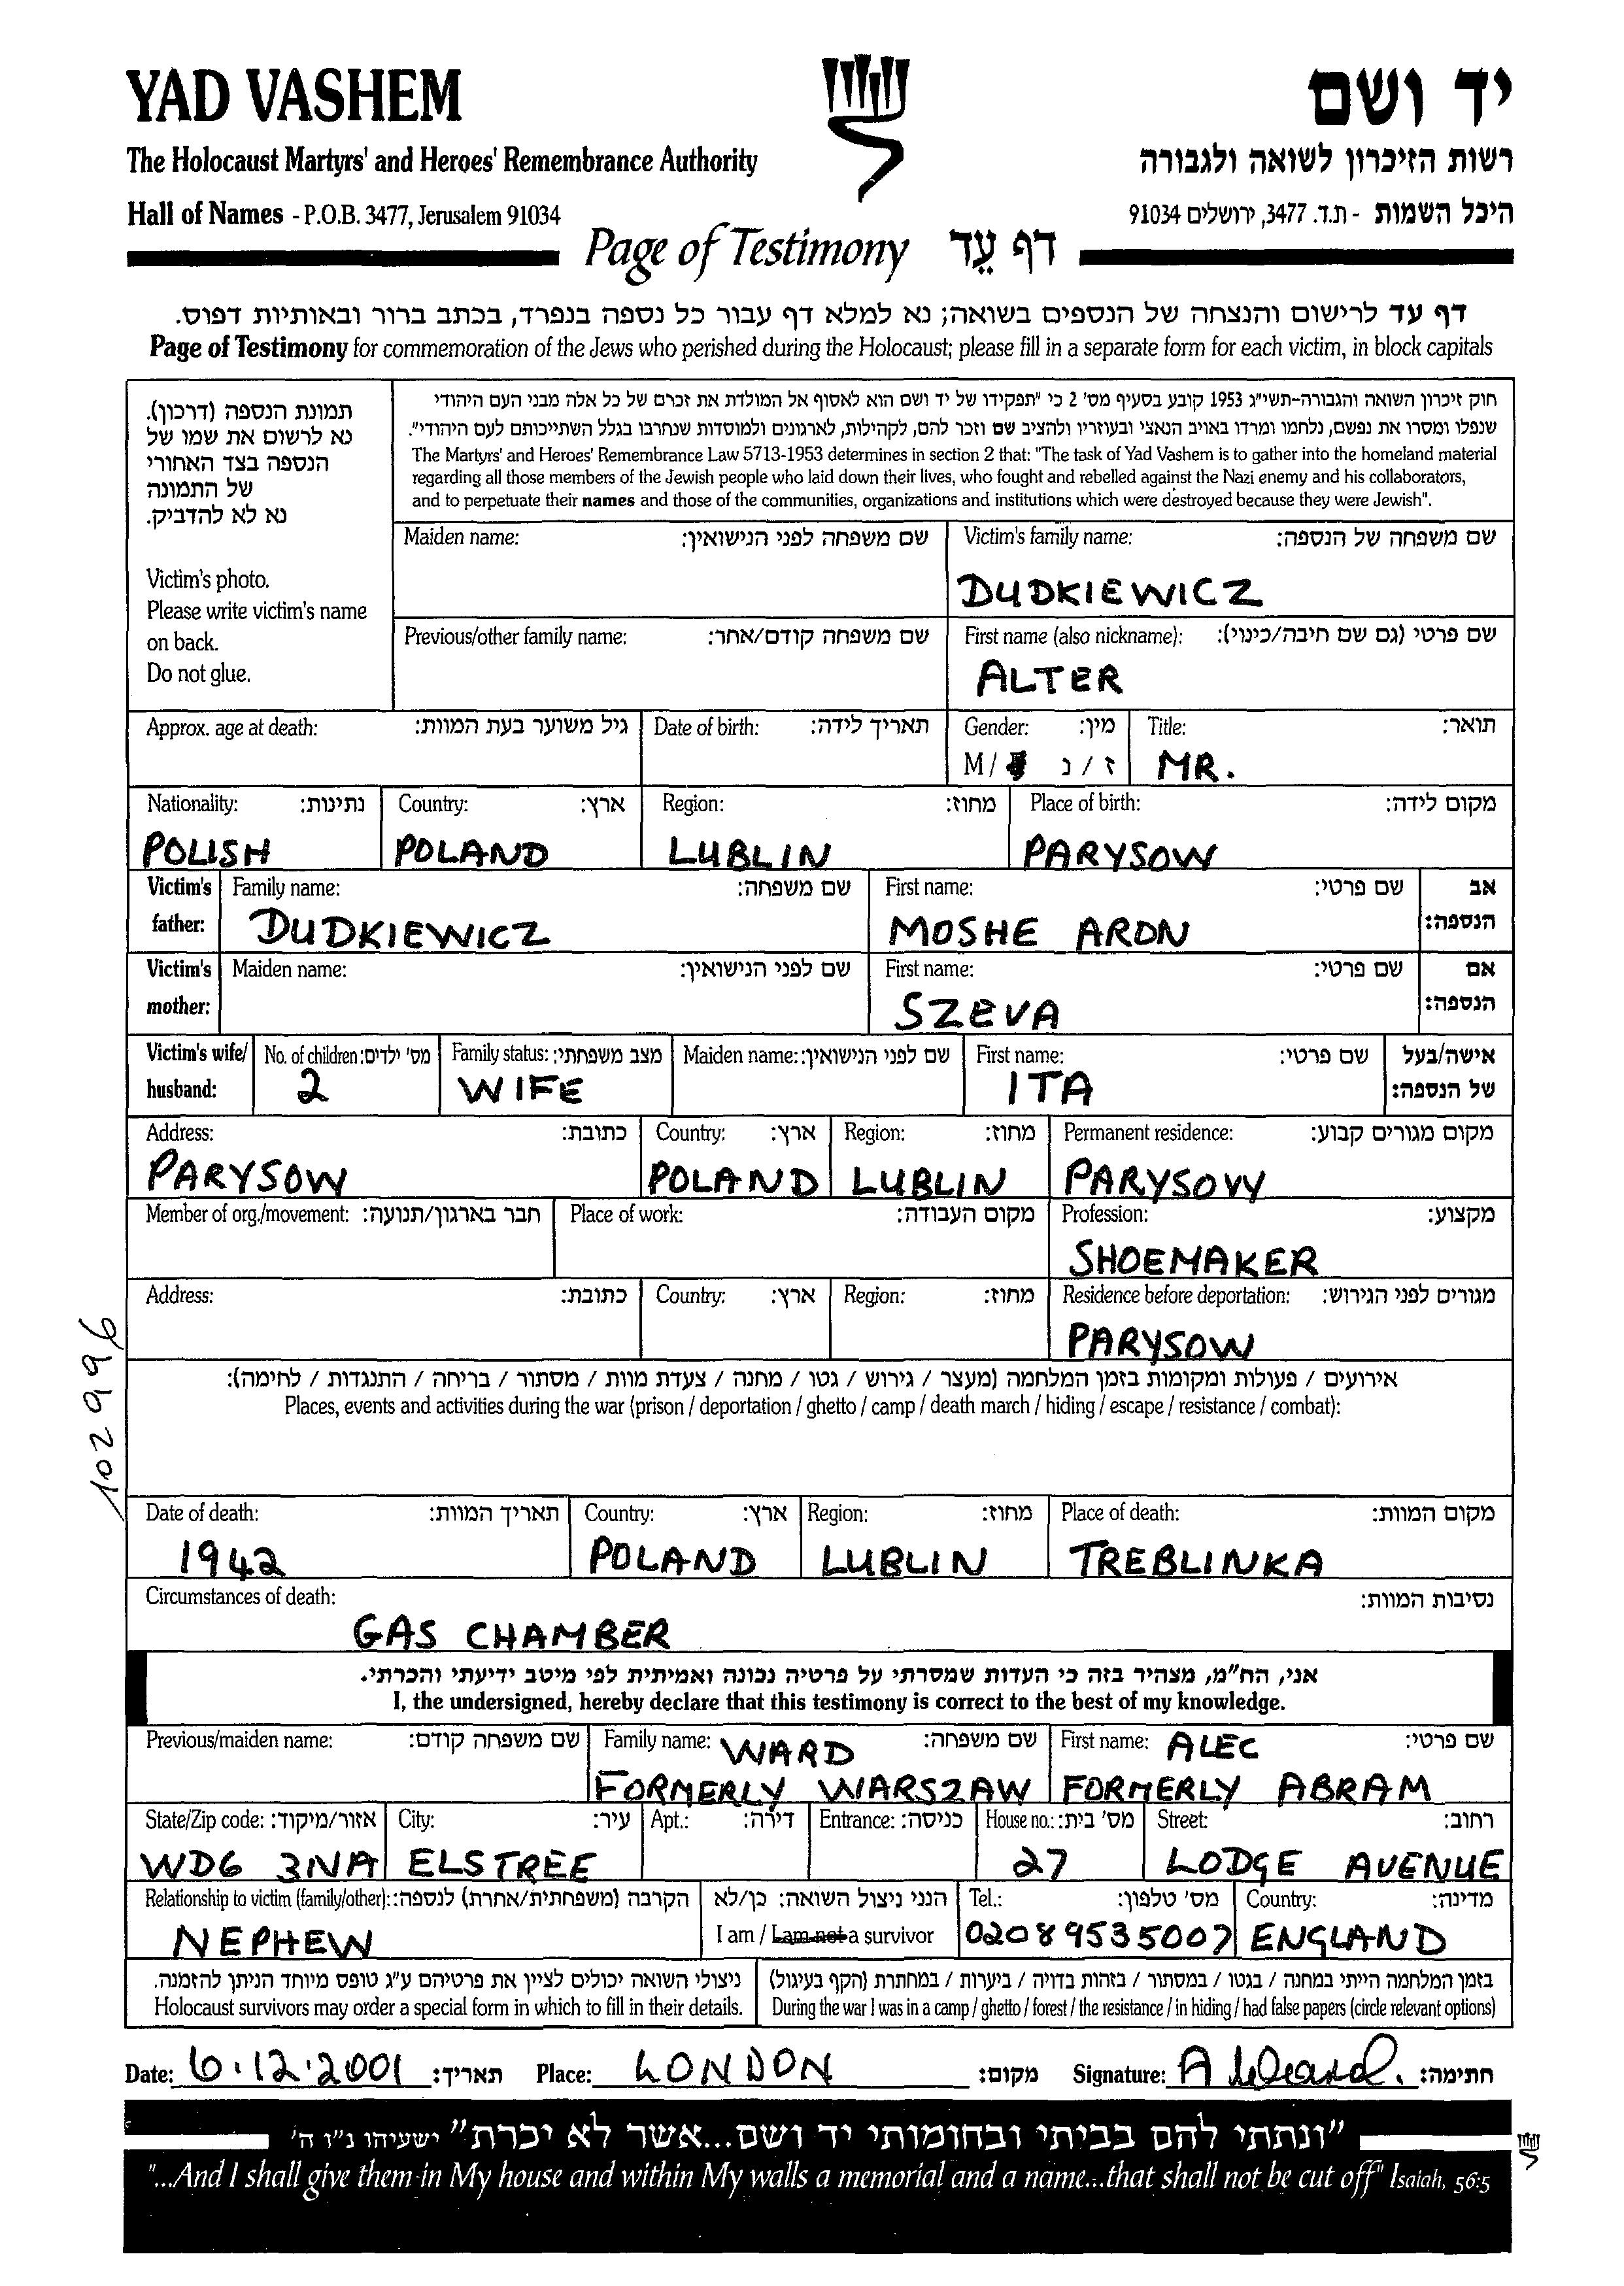 YAD VASHEM
יד ושם
The Holocaust Martyrs' and Heroes' Remembrance Authority
רשות הזיכרון לשואה ולגבורה
Hall of Names - P.O.B. 3477, Jerusalem 91034
היכל השמות - ת.ד. 3477, ירושלים 91034
Page of Testimony דף עֵד
דף עד לרישום והנצחה של הנספים בשואה; נא למלא דף עבור כל נספה בנפרד, בכתב ברור ובאותיות דפוס.
Page of Testimony for commemoration of the Jews who perished during the Holocaust; please fill in a separate form for each victim, in block capitals
תמונת הנספה (דרכון).
נא לרשום את שמו של
הנספה בצד האחורי
של התמונה
נא לא להדביק.
Victim's photo.
Please write victim's name
on back.
Do not glue.
חוק זיכרון השואה והגבורה-תשי"ג 1953 קובע בסעיף מס' 2 כי "תפקידו של יד ושם הוא לאסוף אל המולדת את זכרם של כל אלה מבני העם היהודי
שנפלו ומסרו את נפשם, נלחמו ומרדו באויב הנאצי ובעוזריו ולהציב שם וזכר להם, לקהילות, לארגונים ולמוסדות שנחרבו בגלל השתייכותם לעם היהודי".
The Martyrs' and Heroes' Remembrance Law 5713-1953 determines in section 2 that: "The task of Yad Vashem is to gather into the homeland material
regarding all those members of the Jewish people who laid down their lives, who fought and rebelled against the Nazi enemy and his collaborators,
and to perpetuate their names and those of the communities, organizations and institutions which were destroyed because they were Jewish".
Maiden name: שם משפחה לפני הנישואין:
Victim's family name: שם משפחה של הנספה:
DUDKIEWICZ
Previous/other family name: שם משפחה קודם/אחר:
First name (also nickname): שם פרטי (גם שם חיבה/כינוי):
ALTER
Approx. age at death: גיל משוער בעת המוות:
Date of birth: תאריך לידה:
Gender: מין:
M / ז / נ
Title: תואר:
MR.
Nationality: נתינות:
POLISH
Country: ארץ:
POLAND
Region: מחוז:
LUBLIN
Place of birth: מקום לידה:
PARYSOW
Victim's father: אב הנספה:
Family name: שם משפחה:
DUDKIEWICZ
First name: שם פרטי:
MOSHE ARON
Victim's mother: אם הנספה:
Maiden name: שם לפני הנישואין:
First name: שם פרטי:
SZEVA
Victim's wife/ husband: אישה/בעל של הנספה:
No. of children: מס' ילדים:
2
Family status: מצב משפחתי:
WIFE
Maiden name: שם לפני הנישואין:
First name: שם פרטי:
ITA
Address: כתובת:
PARYSOW
Country: ארץ:
POLAND
Region: מחוז:
LUBLIN
Permanent residence: מקום מגורים קבוע:
PARYSOW
Member of org./movement: חבר בארגון/תנועה:
Place of work: מקום העבודה:
Profession: מקצוע:
SHOEMAKER
Address: כתובת:
Country: ארץ:
Region: מחוז:
Residence before deportation: מגורים לפני הגירוש:
PARYSOW
102996
אירועים / פעולות ומקומות בזמן המלחמה (מעצר / גירוש / גטו / מחנה / צעדת מוות / מסתור / בריחה / התנגדות / לחימה):
Places, events and activities during the war (prison / deportation / ghetto / camp / death march / hiding / escape / resistance / combat):
Date of death: תאריך המוות:
1942
Country: ארץ:
POLAND
Region: מחוז:
LUBLIN
Place of death: מקום המוות:
TREBLINKA
Circumstances of death: נסיבות המוות:
GAS CHAMBER
אני, הח"מ, מצהיר בזה כי העדות שמסרתי על פרטיה נכונה ואמיתית לפי מיטב ידיעתי והכרתי.
I, the undersigned, hereby declare that this testimony is correct to the best of my knowledge.
Previous/maiden name: שם משפחה קודם:
Family name: WARD שם משפחה:
FORMERLY WARSZAW
First name: ALEC שם פרטי:
FORMERLY ABRAM
State/Zip code: אזור/מיקוד:
WD6 3NA
City: עיר:
ELSTREE
Apt.: דירה:
Entrance: כניסה:
House no.: מס' בית:
27
Street: רחוב:
LODGE AVENUE
Relationship to victim (family/other): הקרבה (משפחתית/אחרת) לנספה:
NEPHEW
הנני ניצול השואה: כן/לא
I am / I am not a survivor
Tel.: מס' טלפון:
02089535007
Country: מדינה:
ENGLAND
ניצולי השואה יכולים לציין את פרטיהם ע"ג טופס מיוחד הניתן להזמנה.
Holocaust survivors may order a special form in which to fill in their details.
בזמן המלחמה הייתי במחנה / בגטו / במסתור / בזהות בדויה / ביערות / במחתרת (הקף בעיגול)
During the war I was in a camp / ghetto / forest / the resistance / in hiding / had false papers (circle relevant options)
Date: 6.12.2001 תאריך: Place: LONDON מקום: Signature: A Ward. חתימה:
"ונתתי להם בביתי ובחומותי יד ושם...אשר לא יכרת" ישעיהו נ"ו ה'
"...And I shall give them in My house and within My walls a memorial and a name...that shall not be cut off" Isaiah, 56:5